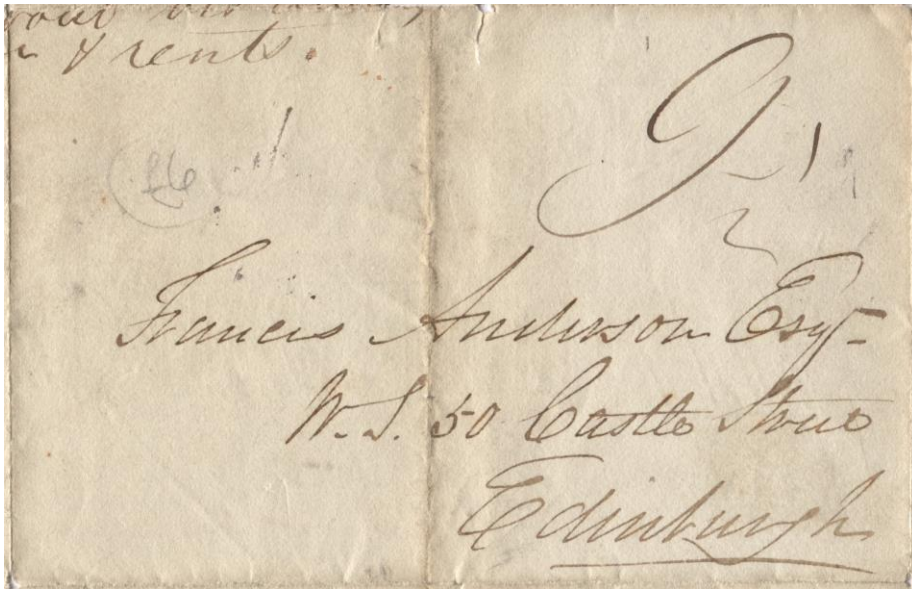 & rents.
9
£6
Francis Anderson Esqr
W.S. 50 Castle Street
Edinburgh